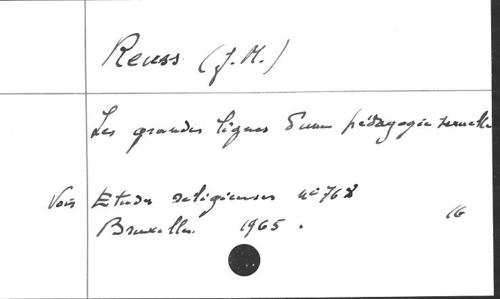 Reuss (J.M.)
Les grandes lignes d'une pédagogie sexuelle
Voir Etudes religieuses n° 768
Bruxelles. 1965.
16